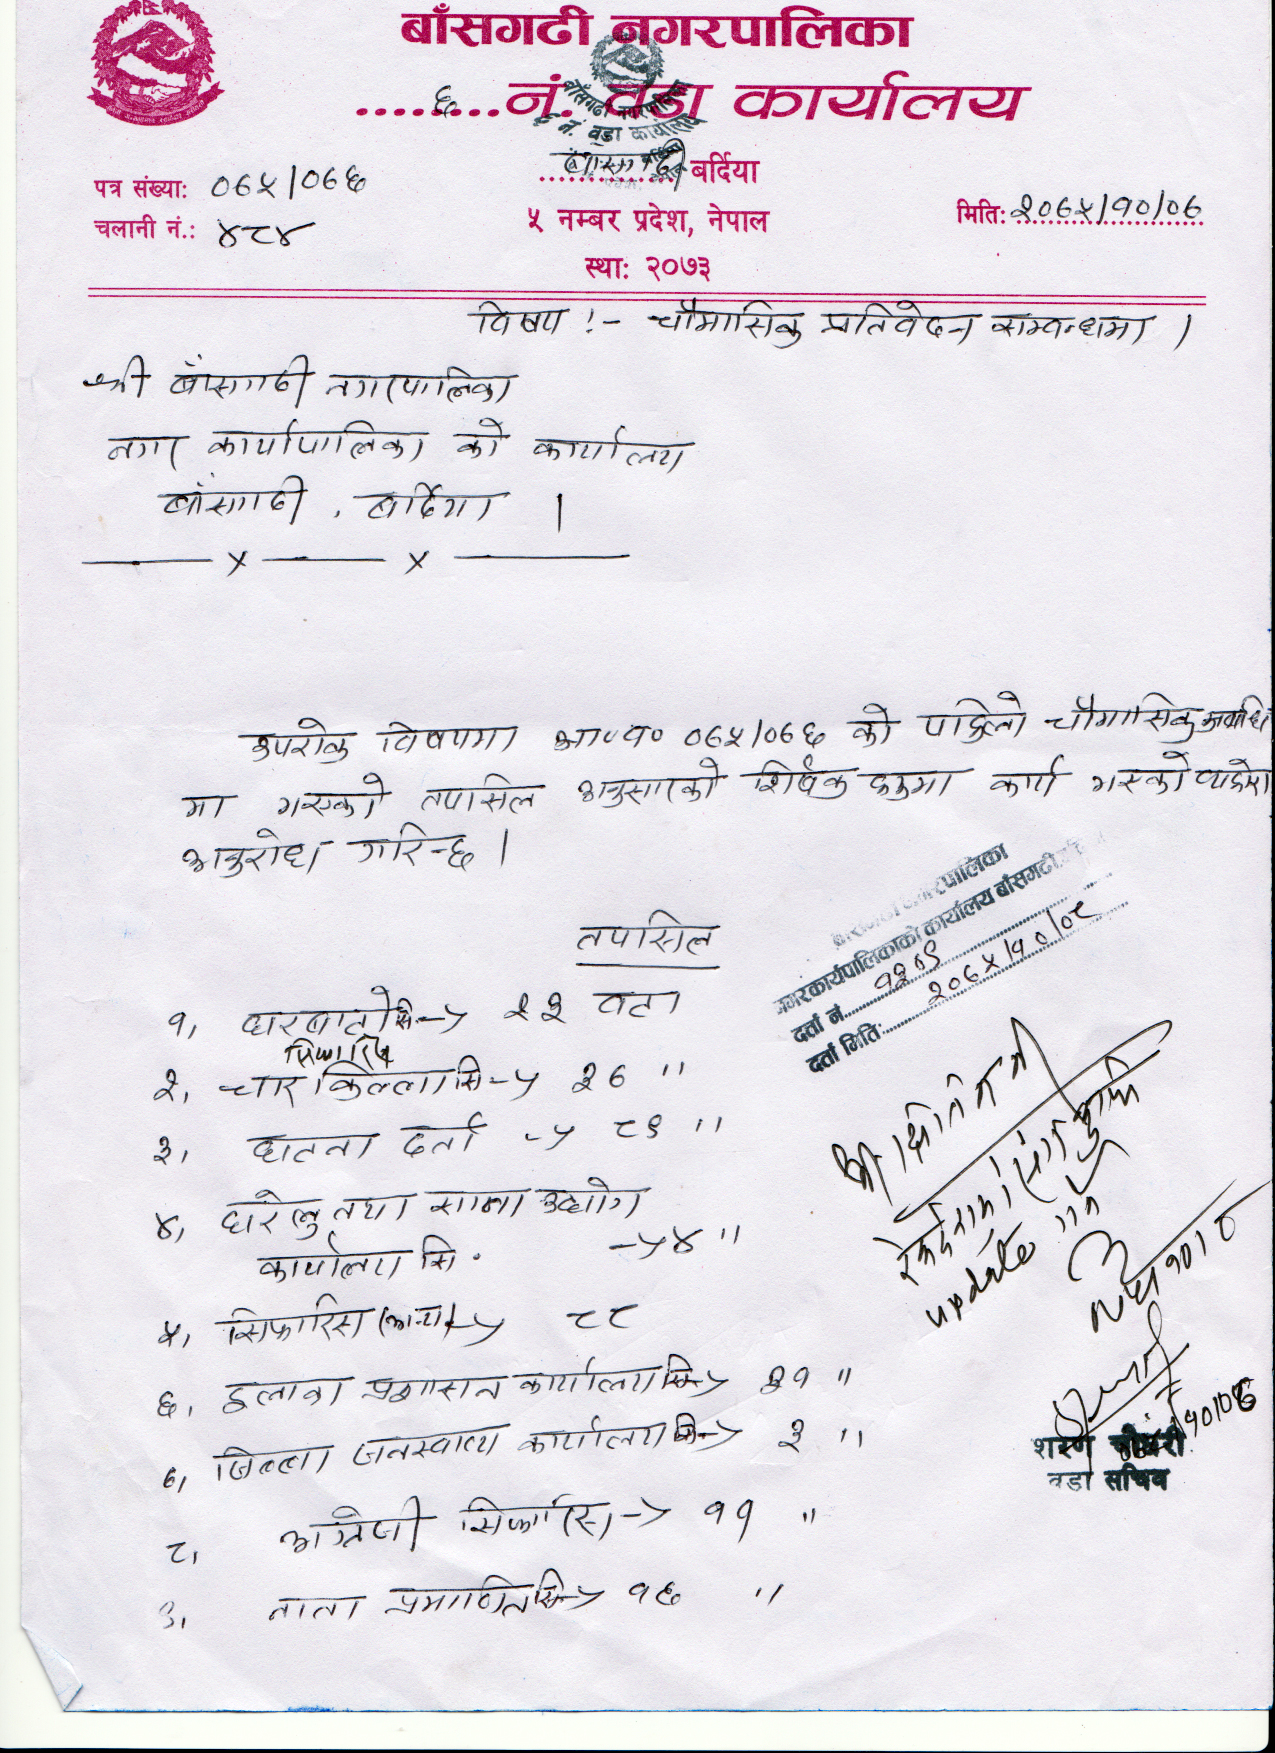 बाँसगढी नगरपालिका
....६...नं. वडा कार्यालय
बाँसगढी बर्दिया
पत्र संख्या: ०७५/०७६
चलानी नं.: ४८४
५ नम्बर प्रदेश, नेपाल
मिति: २०७५/१०/०७
स्था: २०७३
विषय :- चौमासिक प्रतिवेदन सम्वन्धमा ।
श्री बाँसगढी नगरपालिका
नगर कार्यापालिका को कार्यालय
बाँसगढी , बर्दिया ।
उपरोक्त विषयमा आ०व० ०७५/०७६ को पहिलो चौमासिक अवधि
मा गरएको तपसिल अनुसारको शिर्षक कार्य गरएको व्यहोरा
अनुरोध गरिन्छ ।
तपसिल
१, घरबाटो सि -> २३ वटा
सिफारिस
२, चार किल्ला सि -> ३७ "
३, घटना दर्ता -> ८९ "
४, घरेलु तथा साना उद्योग
कार्यालय सि . -> ४ "
५, सिफारिस (अन्य) -> ८८
६, इलाका प्रशासन कार्यालय सि -> ३१ "
७, जिल्ला जनस्वास्थ्य कार्यालय सि -> ३ "
८, अंग्रेजी सिफारिस -> ११ "
९, नाता प्रमाणित सि -> १६ "
बाँसगढी नगरपालिका
नगरकार्यपालिकाको कार्यालय बाँसगढी
दर्ता नं.
दर्ता मिति: २०७५/१०/०८
update
शरण चौधरी
वडा सचिव